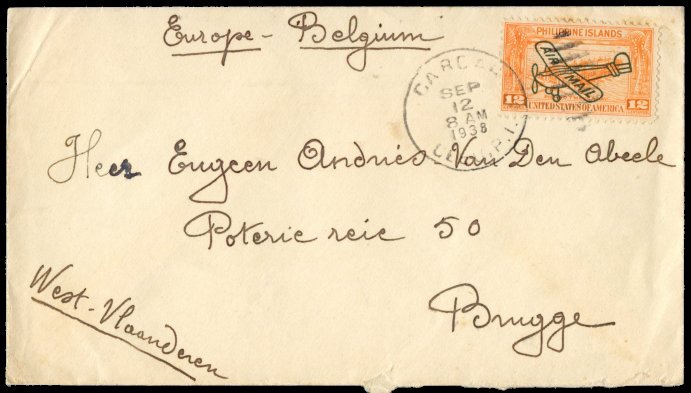 Europe - Belgium
PHILIPPINE ISLANDS
AIR MAIL
12 12
UNITED STATES OF AMERICA
CARCAR
SEP
12
8 AM
1938
CEBU, P.I.
Heer Eugeen Andriés Van Den Abeele
Poterie reie 50
Brugge
West-Vlaanderen